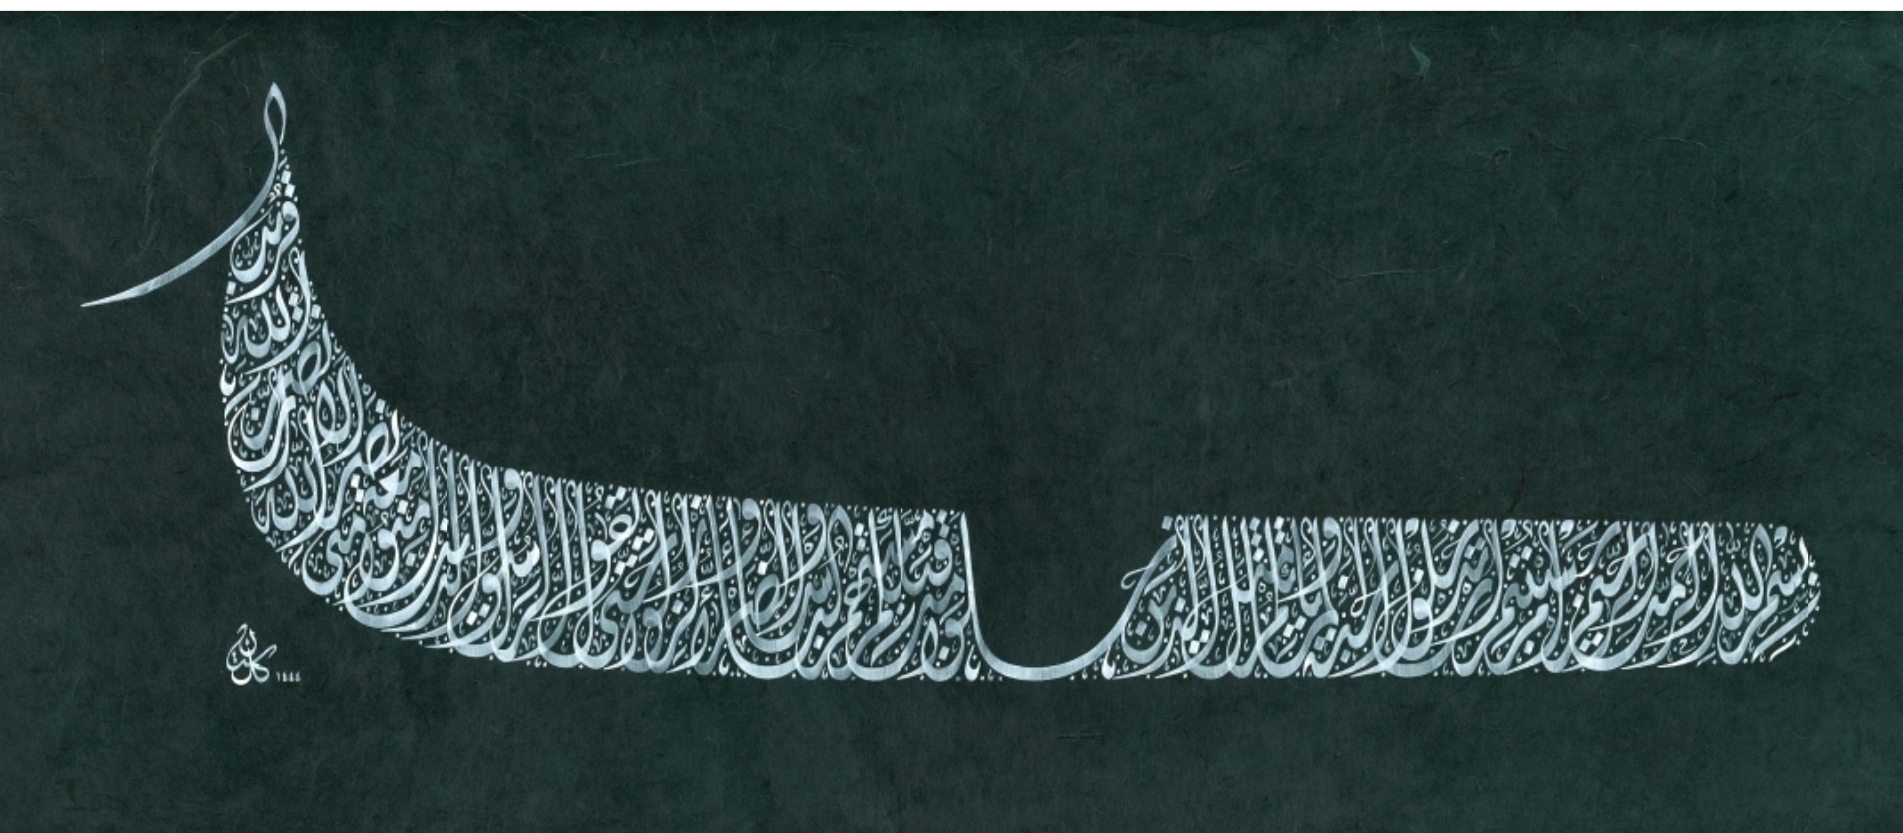 بسم الله الرحمن الرحيم أم حسبتم أن تدخلوا الجنة ولما يأتكم مثل الذين خلوا من قبلكم مستهم البأساء والضراء وزلزلوا حتى يقول الرسول والذين آمنوا معه متى نصر الله ألا إن نصر الله قريب
١٤٤٤